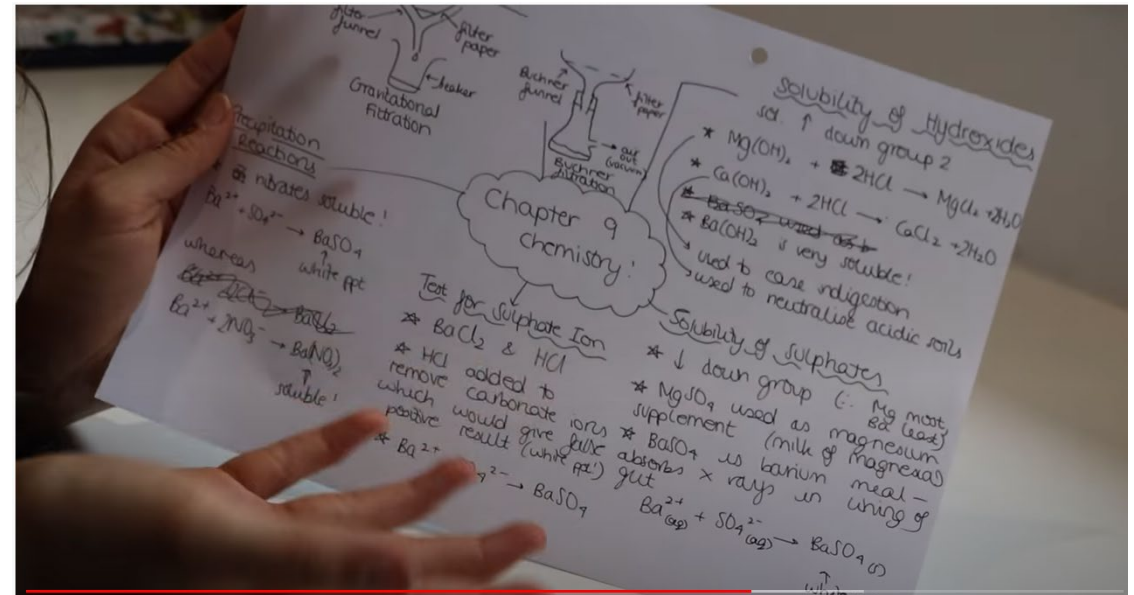 filter
funnel
filter
paper
beaker
Gravitational
Filtration
Buchner
funnel
filter
paper
air
out
(vacuum)
Buchner
filtration
Precipitation
Reactions
nitrates soluble!
Ba²⁺ + SO₄²⁻ → BaSO₄
↑
white ppt
whereas
BaCl₂
Ba²⁺ + 2NO₃⁻ → Ba(NO₃)₂
↑
soluble!
Chapter 9
chemistry!
Solubility of Hydroxides
sol. ↑ down group 2
* Mg(OH)₂ + 2HCl → MgCl₂ + 2H₂O
* Ca(OH)₂ + 2HCl → CaCl₂ + 2H₂O
* BaSO₄ used as b
* Ba(OH)₂ is very soluble!
used to ease indigestion
used to neutralise acidic soils
Test for Sulphate Ion
* BaCl₂ & HCl
* HCl added to
remove carbonate ions
which would give false
positive result (white ppt!)
* Ba²⁺ ₄²⁻ → BaSO₄
Solubility of Sulphates
* ↓ down group (∴ Mg most,
Ba least)
* MgSO₄ used as magnesium
supplement (milk of magnesia)
* BaSO₄ is barium meal –
absorbs x rays in lining of
gut
Ba²⁺(aq) + SO₄²⁻(aq) → BaSO₄(s)
↑